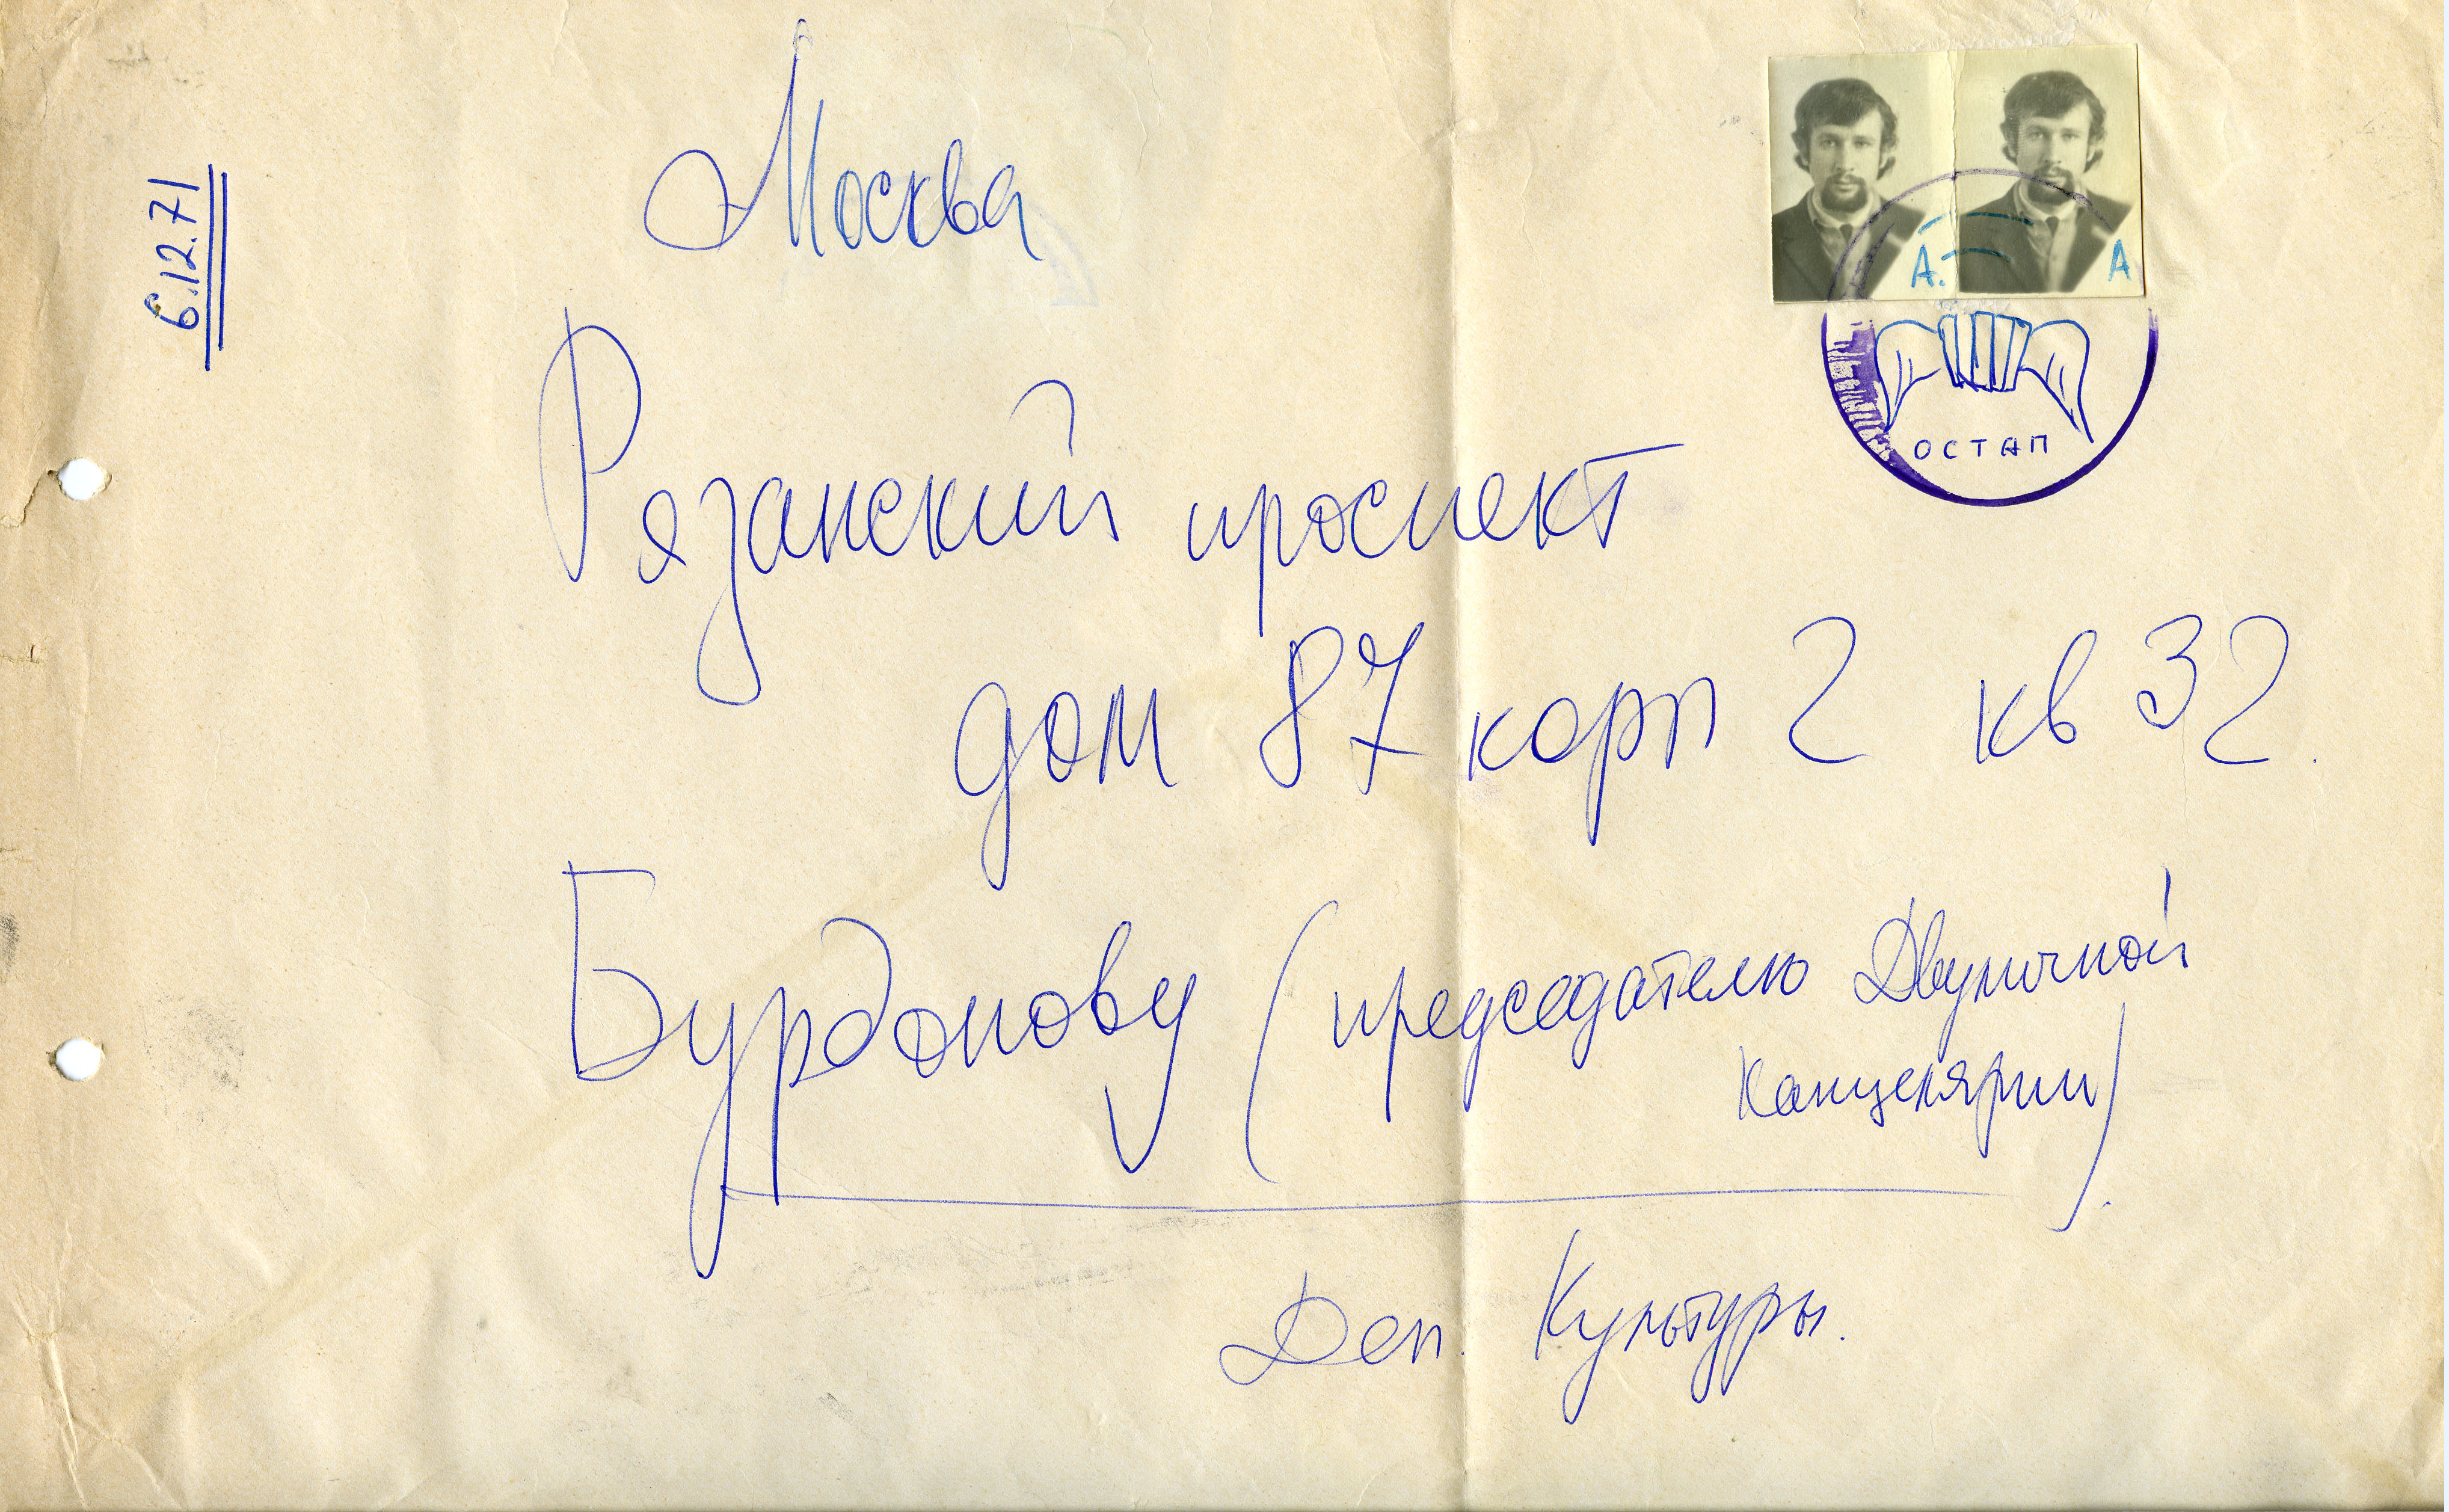 6.12.71
Москва
А. А
ОСТАП
Рязанский проспект
дом 87 корп 2 кв 32.
Бурдонову (председателю Двуличной
Канцелярии).
Деп. Культуры.